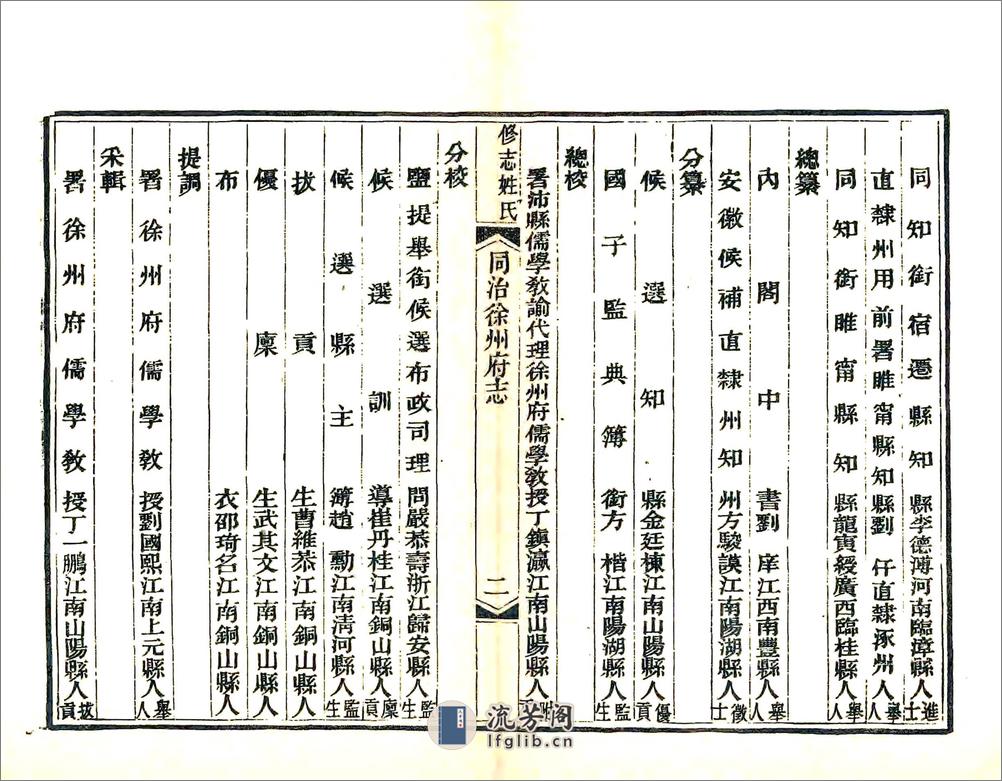 同知銜宿遷縣知縣李德溥河南臨漳縣人進士
直隸州用前署睢甯縣知縣劉仟直隸涿州人舉人
同知銜睢甯縣知縣龍寅綬廣西臨桂縣人舉人
總纂
內閣中書劉庠江西南豐縣人舉人
安徽候補直隸州知州方駿謨江南陽湖縣人徵士
分纂
候選知縣金廷棟江南山陽縣人優貢
國子監典簿銜方楷江南陽湖縣人監生
總校
署沛縣儒學教諭代理徐州府儒學教授丁鎮瀛江南山陽縣人
修志姓氏
同治徐州府志
二
分校
鹽提舉銜候選布政司理問嚴恭壽浙江歸安縣人監生
候選訓導崔丹桂江南銅山縣人廩貢
候選縣主簿趙勳江南清河縣人監生
拔貢生曹維恭江南銅山縣人
優廩生武其文江南銅山縣人
布衣邵琦名江南銅山縣人
提調
署徐州府儒學教授劉國熙江南上元縣人舉人
采輯
署徐州府儒學教授丁一鵬江南山陽縣人拔貢
流芳阁
lfglib.cn